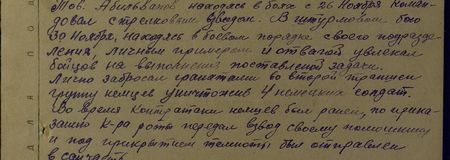 Тов. Абильватов находясь в боях с 26 ноября коман-
довал стрелковым взводом. В штурмовом бою
30 ноября, находясь в боевом порядке своего подразде-
ления, личным примером и отвагой увлекал
бойцов на выполнения поставленной задачи.
Лично забросал гранатами во второй траншеи
группу немцев уничтожив 4 немецких солдат.
Во время контратаки немцев был ранен, по прика-
занию к-ра роты передал взвод своему помощнику
и под прикрытием темноты был отправлен
в санчасть